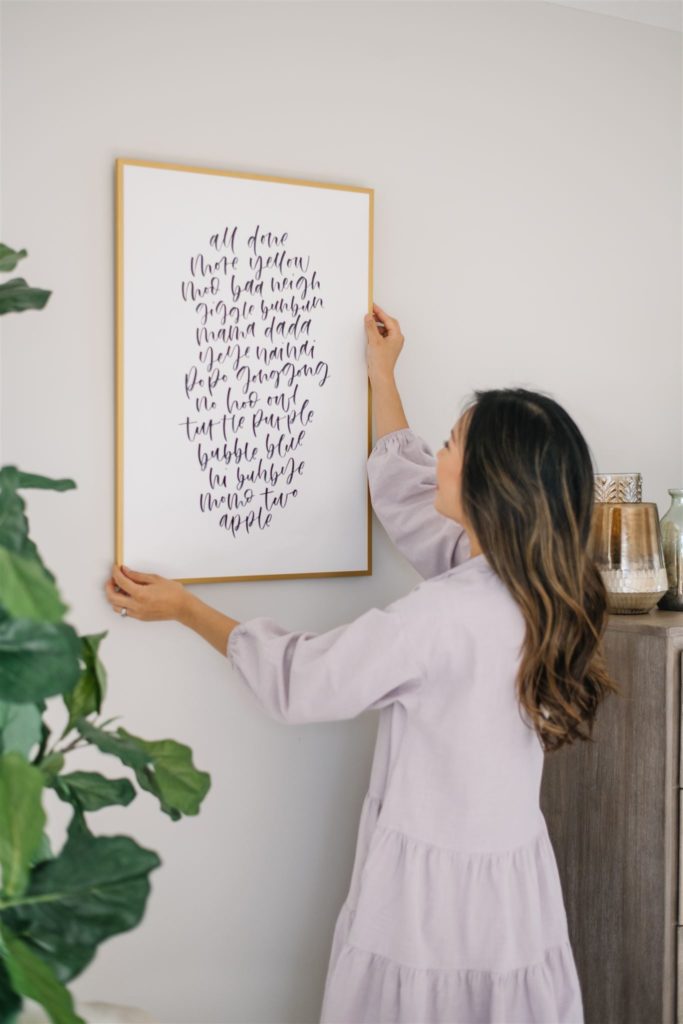 all done
more yellow
moo baa neigh
giggle bunbun
mama dada
yeye nainai
popo gonggong
no hoo owl
turtle purple
bubble blue
hi buhbye
momo two
apple